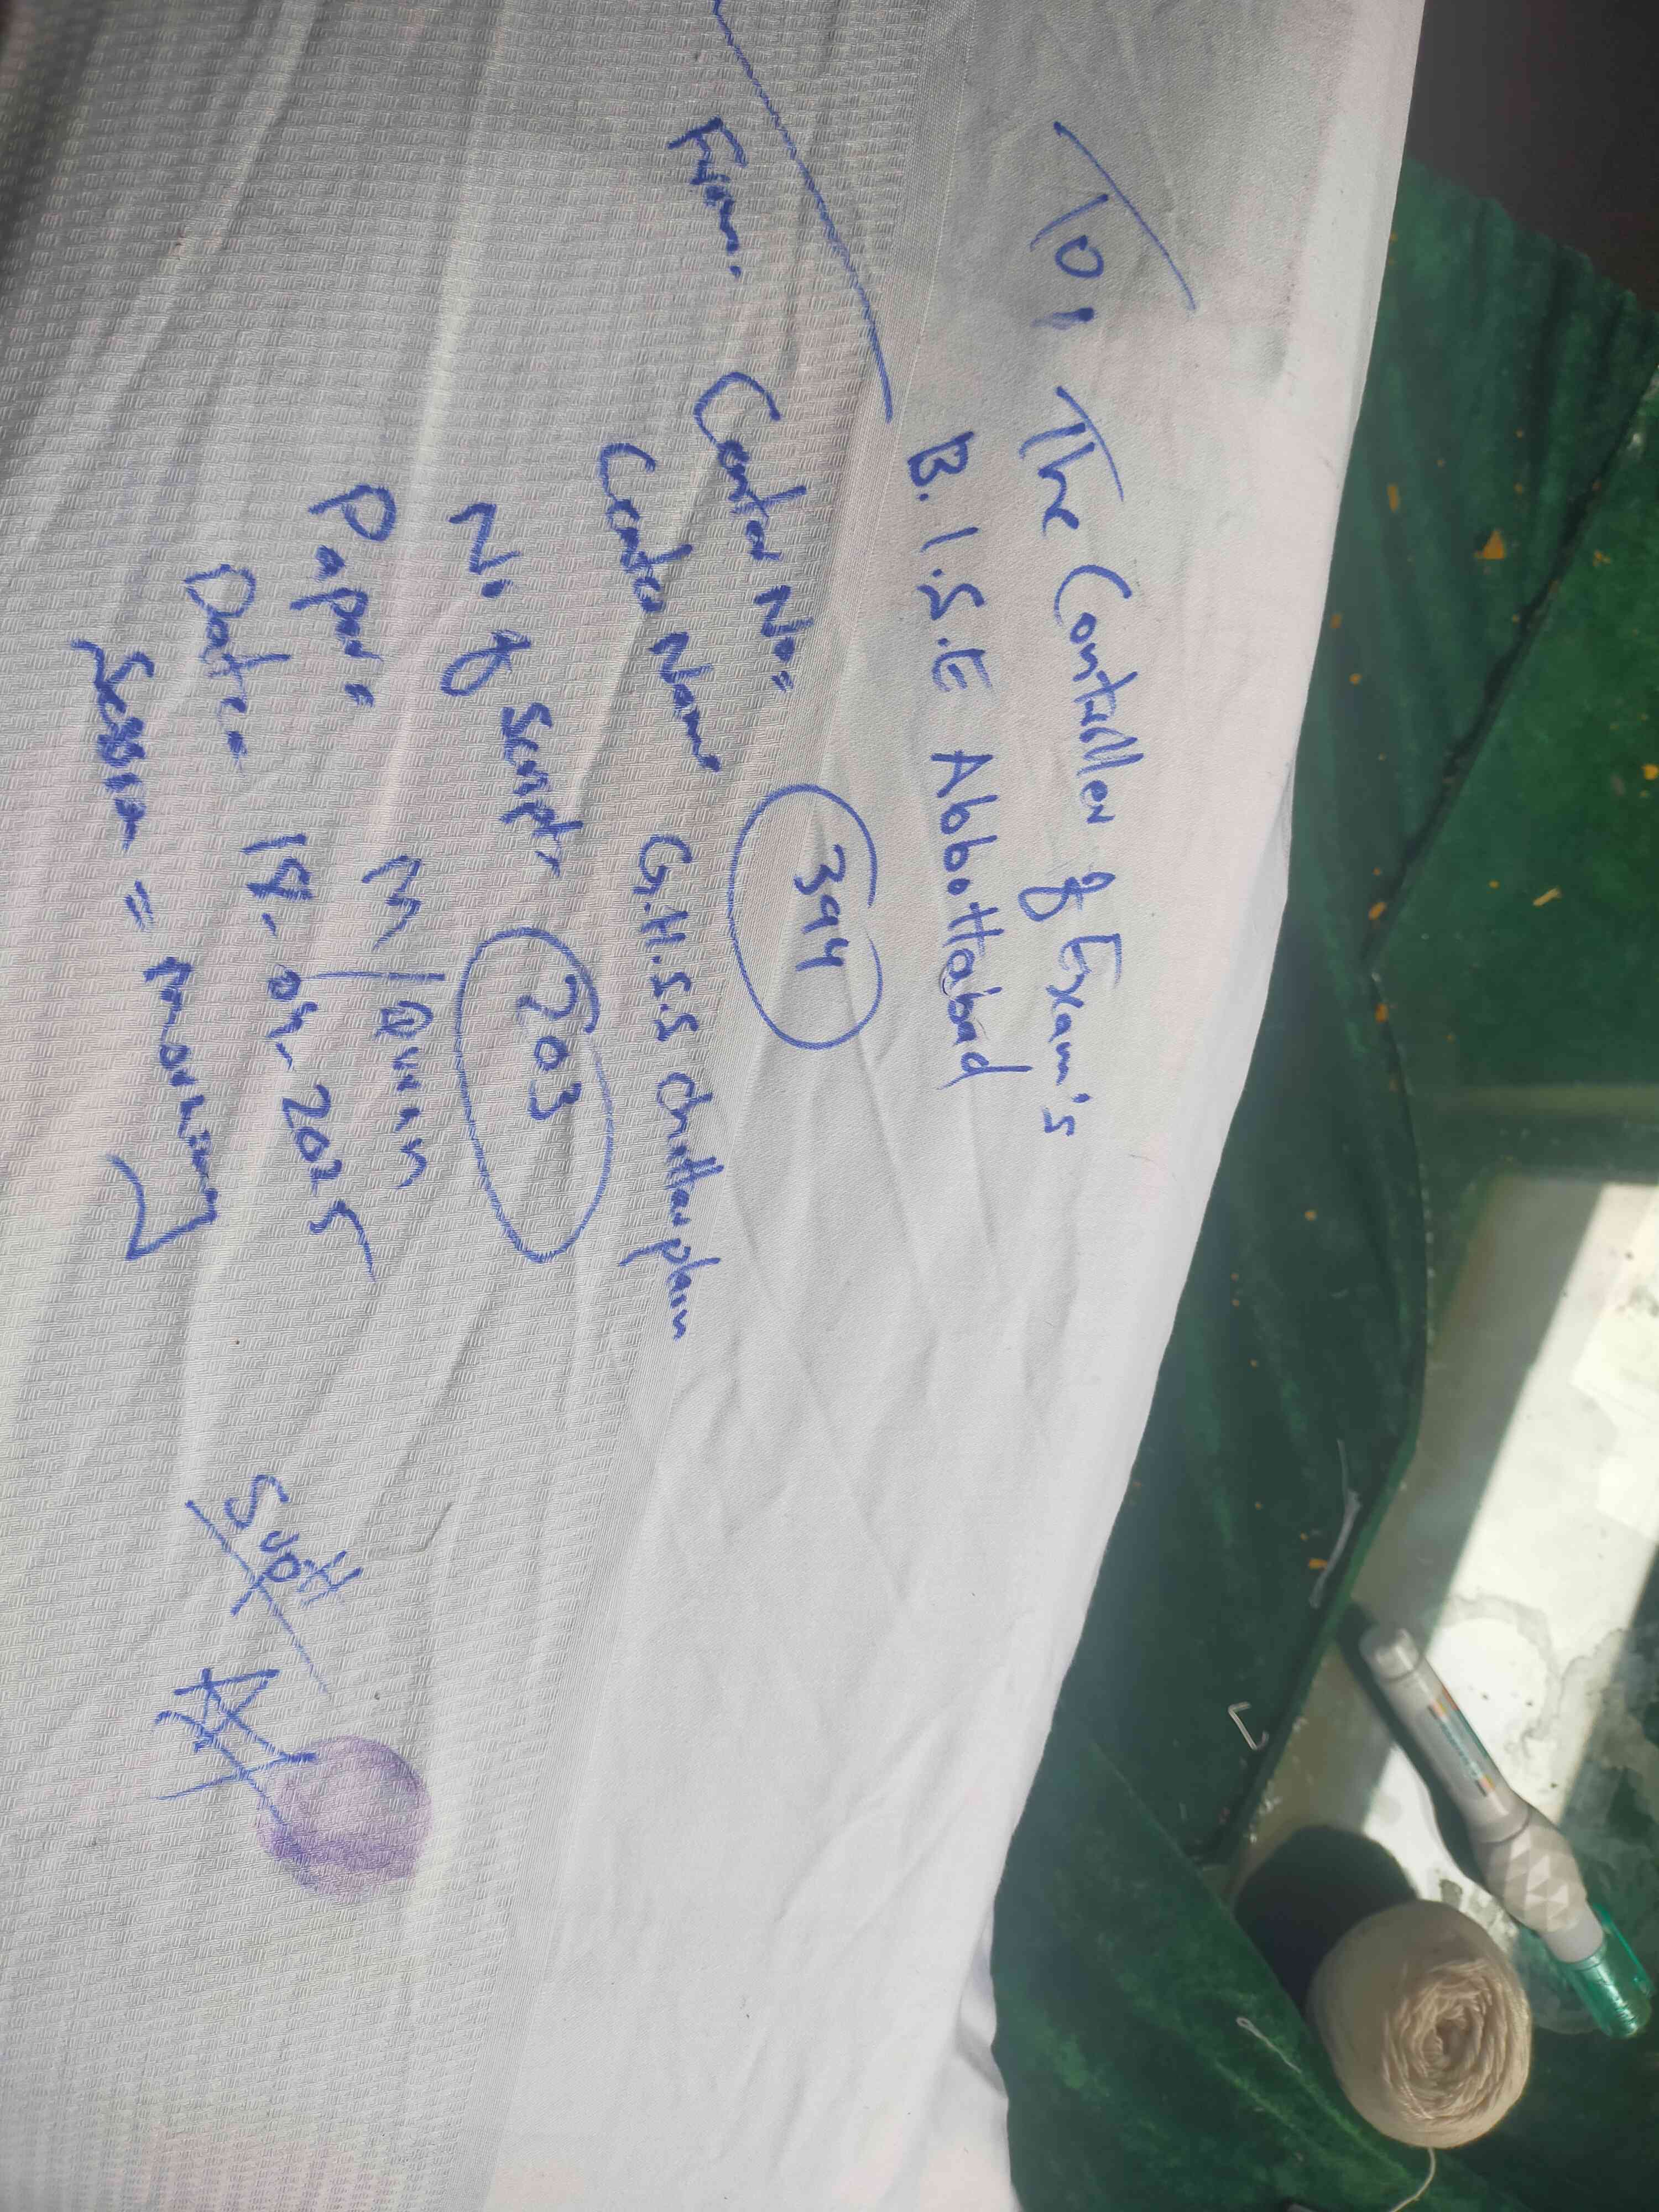 To, The Controller of Exam's
B.I.S.E Abbottabad
From. Center No= 394
Center Name G.H.S.S chattar plain
No of script, 203
Paper= M/Quran
Date= 18-04-2025
Session = morning
Supdt